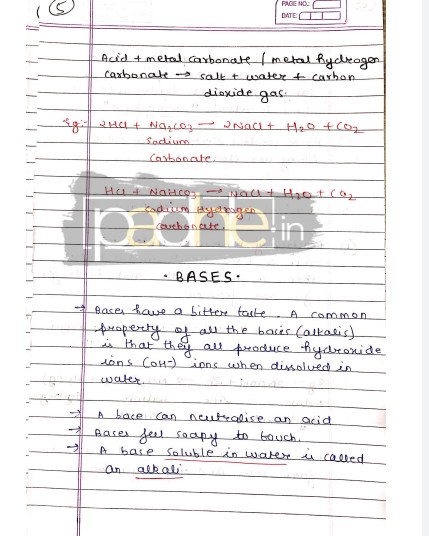 5
PAGE NO.:
DATE:
Acid + metal carbonate / metal hydrogen
carbonate → salt + water + carbon
dioxide gas.
Eg:- 2HCl + Na2CO3 → 2NaCl + H2O + CO2
Sodium
Carbonate.
HCl + NaHCO3 → NaCl + H2O + CO2
Sodium Hydrogen
Carbonate.
padhle.in
• BASES •
→ Bases have a bitter taste. A common
property of all the bases (alkalis)
is that they all produce hydroxide
ions (OH-) ions when dissolved in
water.
→ A base can neutralise an acid
→ Bases feel soapy to touch.
→ A base soluble in water is called
an alkali